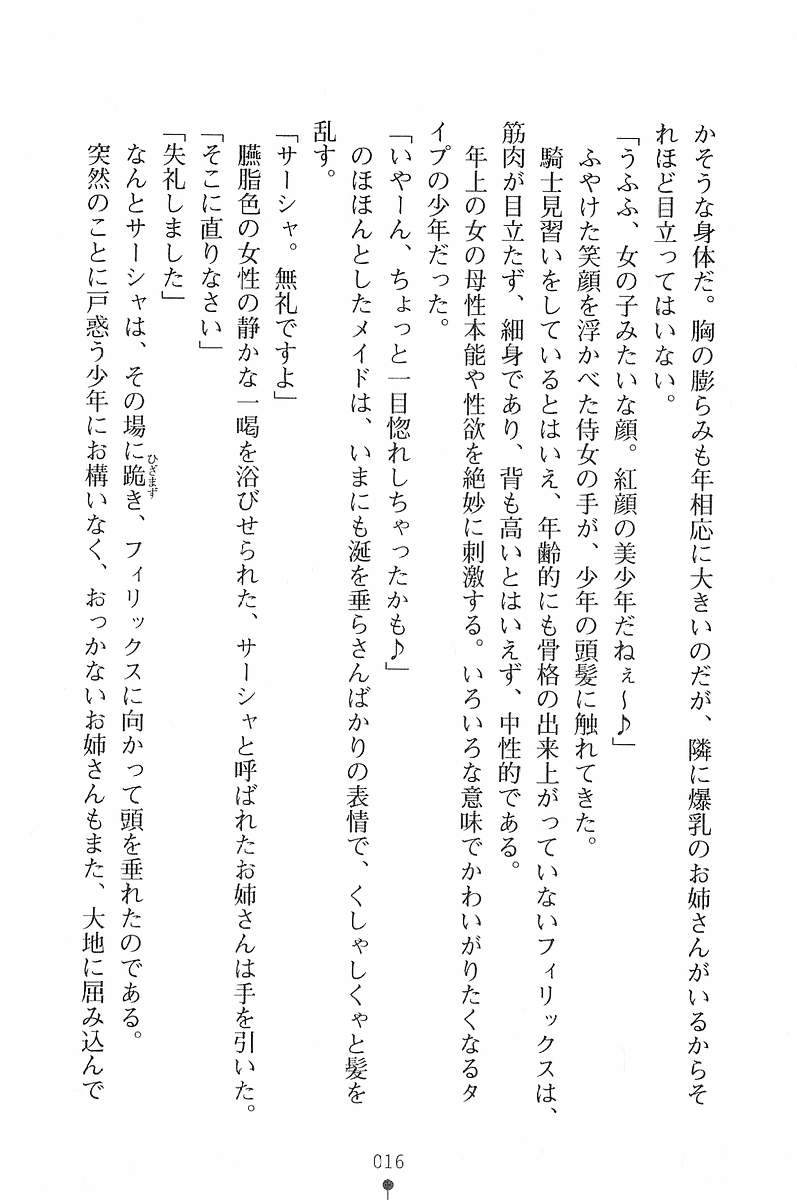 かそうな身体だ。胸の膨らみも年相応に大きいのだが、隣に爆乳のお姉さんがいるからそ
れほど目立ってはいない。
「うふふ、女の子みたいな顔。紅顔の美少年だねぇ～♪」
ふやけた笑顔を浮かべた侍女の手が、少年の頭髪に触れてきた。
騎士見習いをしているとはいえ、年齢的にも骨格の出来上がっていないフィリックスは、
筋肉が目立たず、細身であり、背も高いとはいえず、中性的である。
年上の女の母性本能や性欲を絶妙に刺激する。いろいろな意味でかわいがりたくなるタ
イプの少年だった。
「いやーん、ちょっと一目惚れしちゃったかも♪」
のほほんとしたメイドは、いまにも涎を垂らさんばかりの表情で、くしゃしくゃと髪を
乱す。
「サーシャ。無礼ですよ」
臙脂色の女性の静かな一喝を浴びせられた、サーシャと呼ばれたお姉さんは手を引いた。
「そこに直りなさい」
「失礼しました」
なんとサーシャは、その場に跪き、フィリックスに向かって頭を垂れたのである。
ひざまず
突然のことに戸惑う少年にお構いなく、おっかないお姉さんもまた、大地に屈み込んで
016